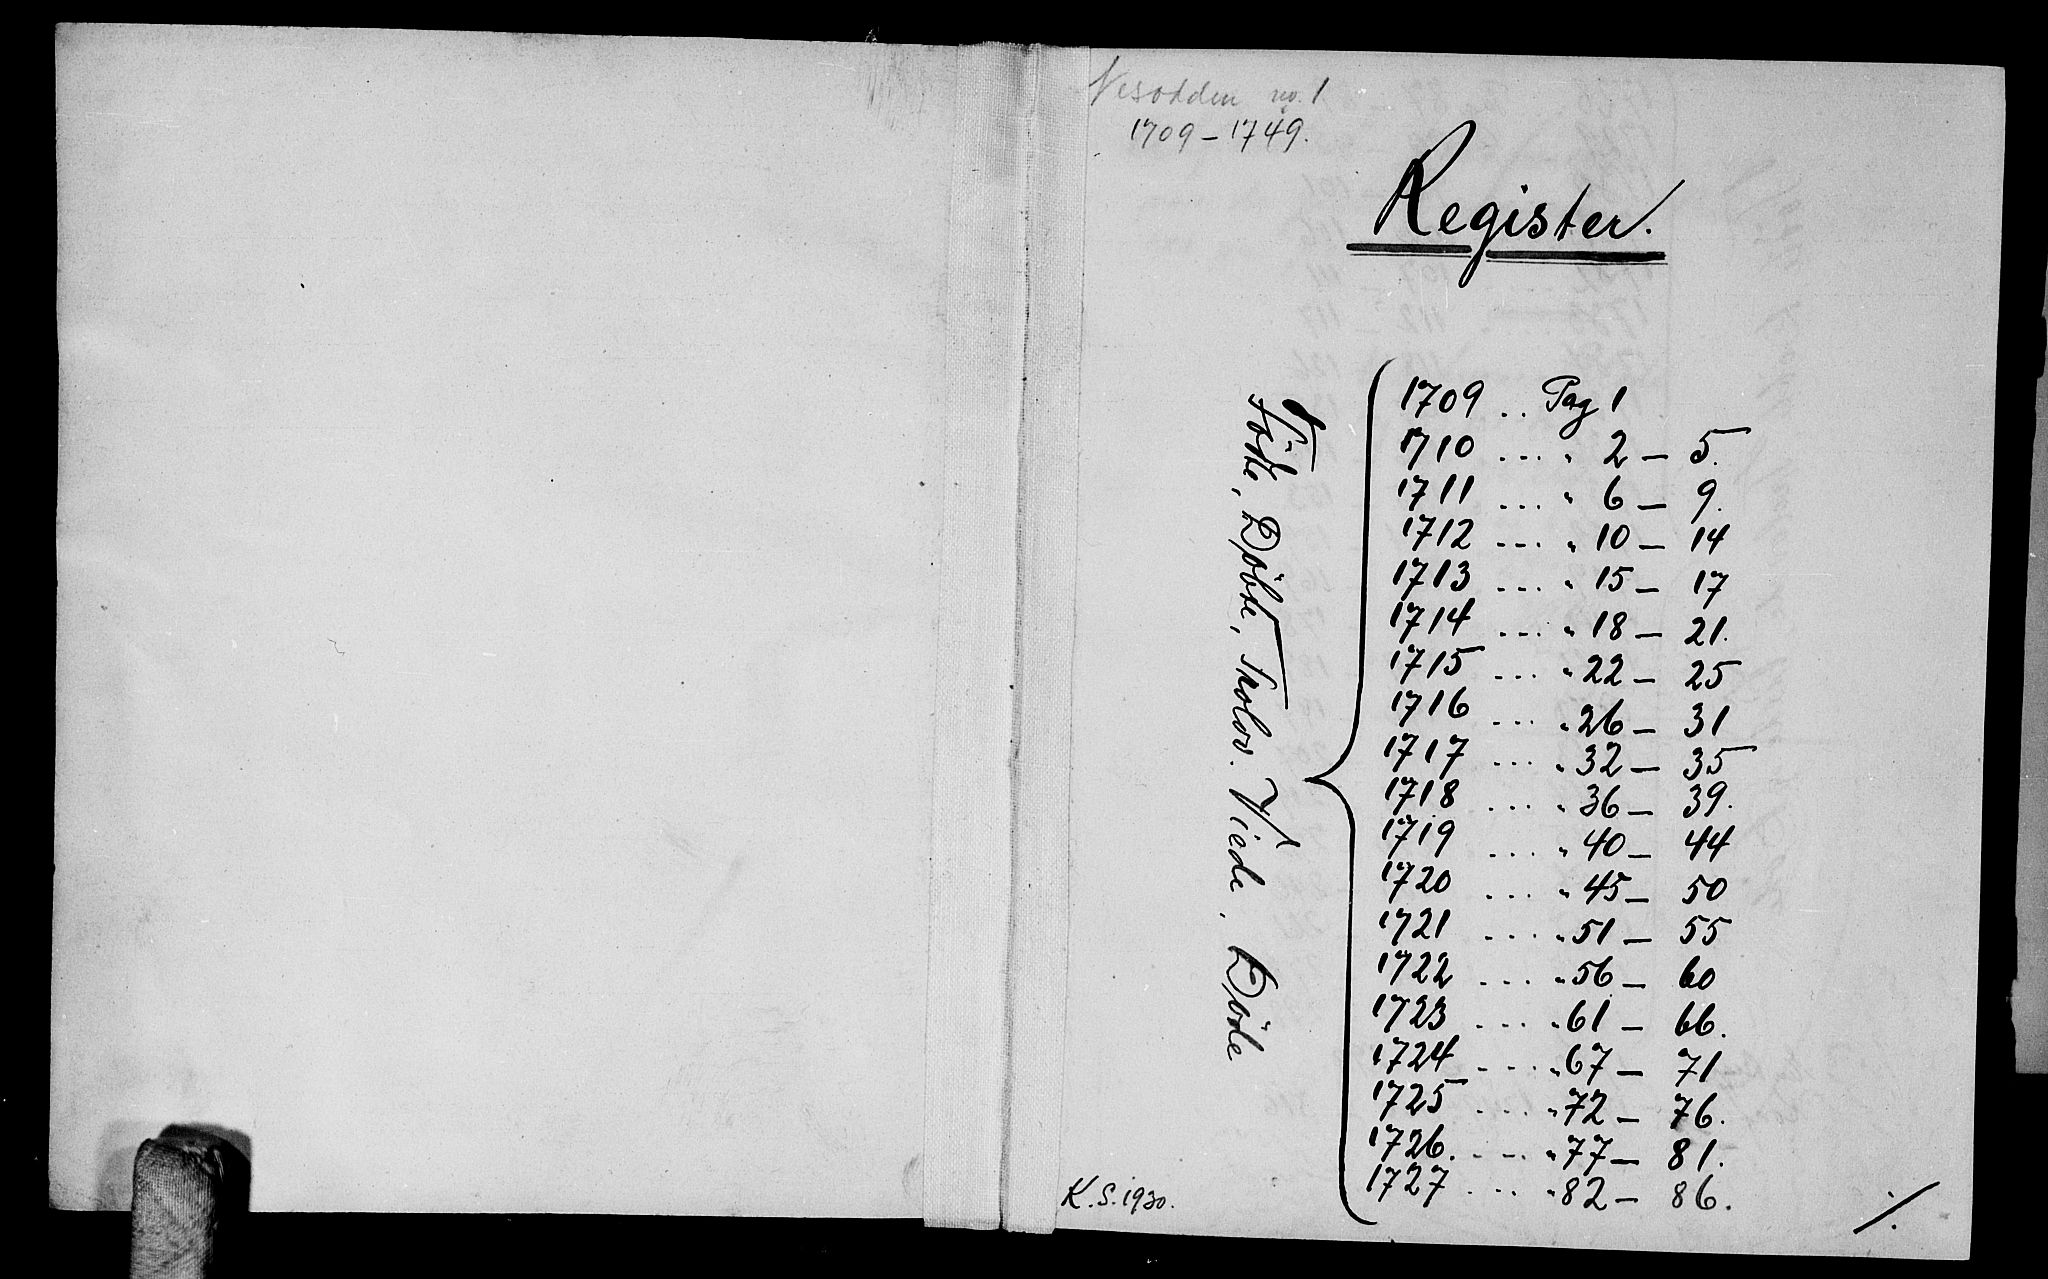 Nesodden no. 1
1709 - 1749.
Register.
Födte, Döbte, Trolov. Viede, Döde
1709 .. Pag 1
1710 ... " 2 - 5.
1711 ... " 6 - 9.
1712 ... " 10 - 14
1713 ... " 15 - 17
1714 ... " 18 - 21.
1715 ... " 22 - 25
1716 ... " 26 - 31
1717 ... " 32 - 35
1718 ... " 36 - 39.
1719 ... " 40 - 44
1720 ... " 45 - 50
1721 ... " 51 - 55
1722 ... " 56 - 60
1723 ... " 61 - 66.
1724 ... " 67 - 71
1725 ... " 72 - 76.
1726. ... " 77 - 81.
1727 ... " 82 - 86.
K. S. 1930.
./.